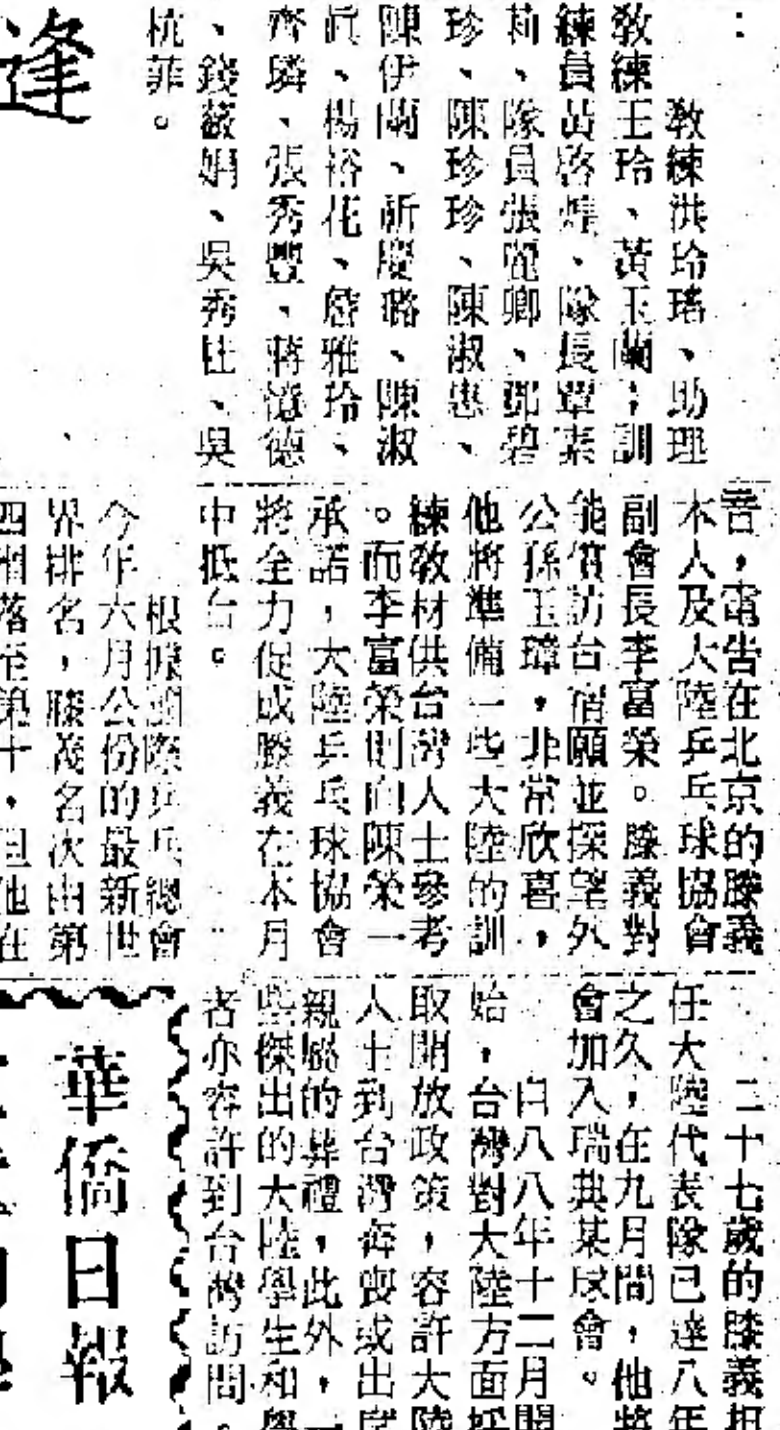 ：
教練洪玲瑤、助理
教練王玲、黃玉蘭；訓
練員黃啓煌、隊長覃素
莉、隊員張麗卿、鄧碧
珍、陳珍珍、陳淑惠、
陳伊蘭、祈慶璐、陳淑
眞、楊裕花、詹雅玲、
齊璘、張秀豐、蔣憶德
、錢薇娟、吳秀杜、吳
杭菲。
逢
書，電告在北京的滕義
本人及大陸乒乓球協會
副會長李富榮。滕義對
能償訪台宿願並探望外
公孫玉璋，非常欣喜，
他將準備一些大陸的訓
練敎材供台灣人士參考
。而李富榮則向陳榮一
承諾，大陸乒乓球協會
將全力促成滕義在本月
中抵台。
根據國際乒乓總會
今年六月公份的最新世
界排名，滕義名次由第
四滑落至第十，但他在
二十七歲的滕義担
任大陸代表隊已達八年
之久，在九月間，他將
會加入瑞典某球會。
自八八年十二月開
始，台灣對大陸方面採
取開放政策，容許大陸
人士到台灣奔喪或出席
親屬的葬禮，此外，一
些傑出的大陸學生和學
者亦容許到台灣訪問。
華僑日報